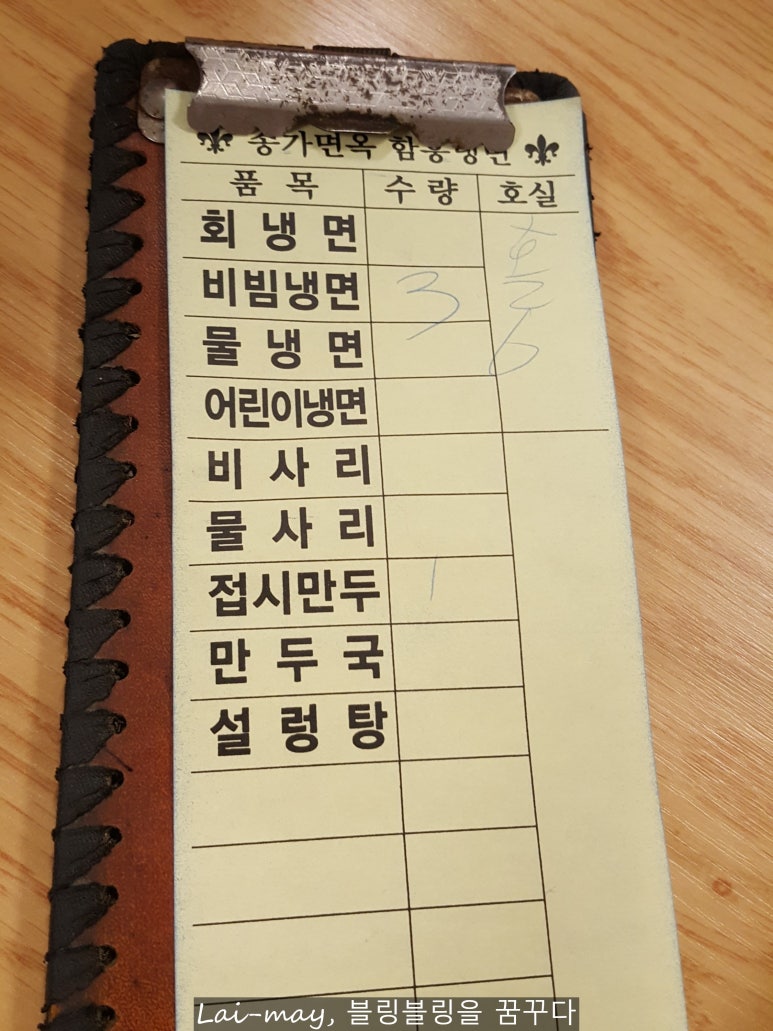 송가면옥 함흥냉면
품 목 수 량 호실
회 냉 면
비빔냉면 3
물 냉 면
어린이냉면
비 사 리
물 사 리
접시만두 1
만 두 국
설 렁 탕
홀
6
Lai-may, 블링블링을 꿈꾸다